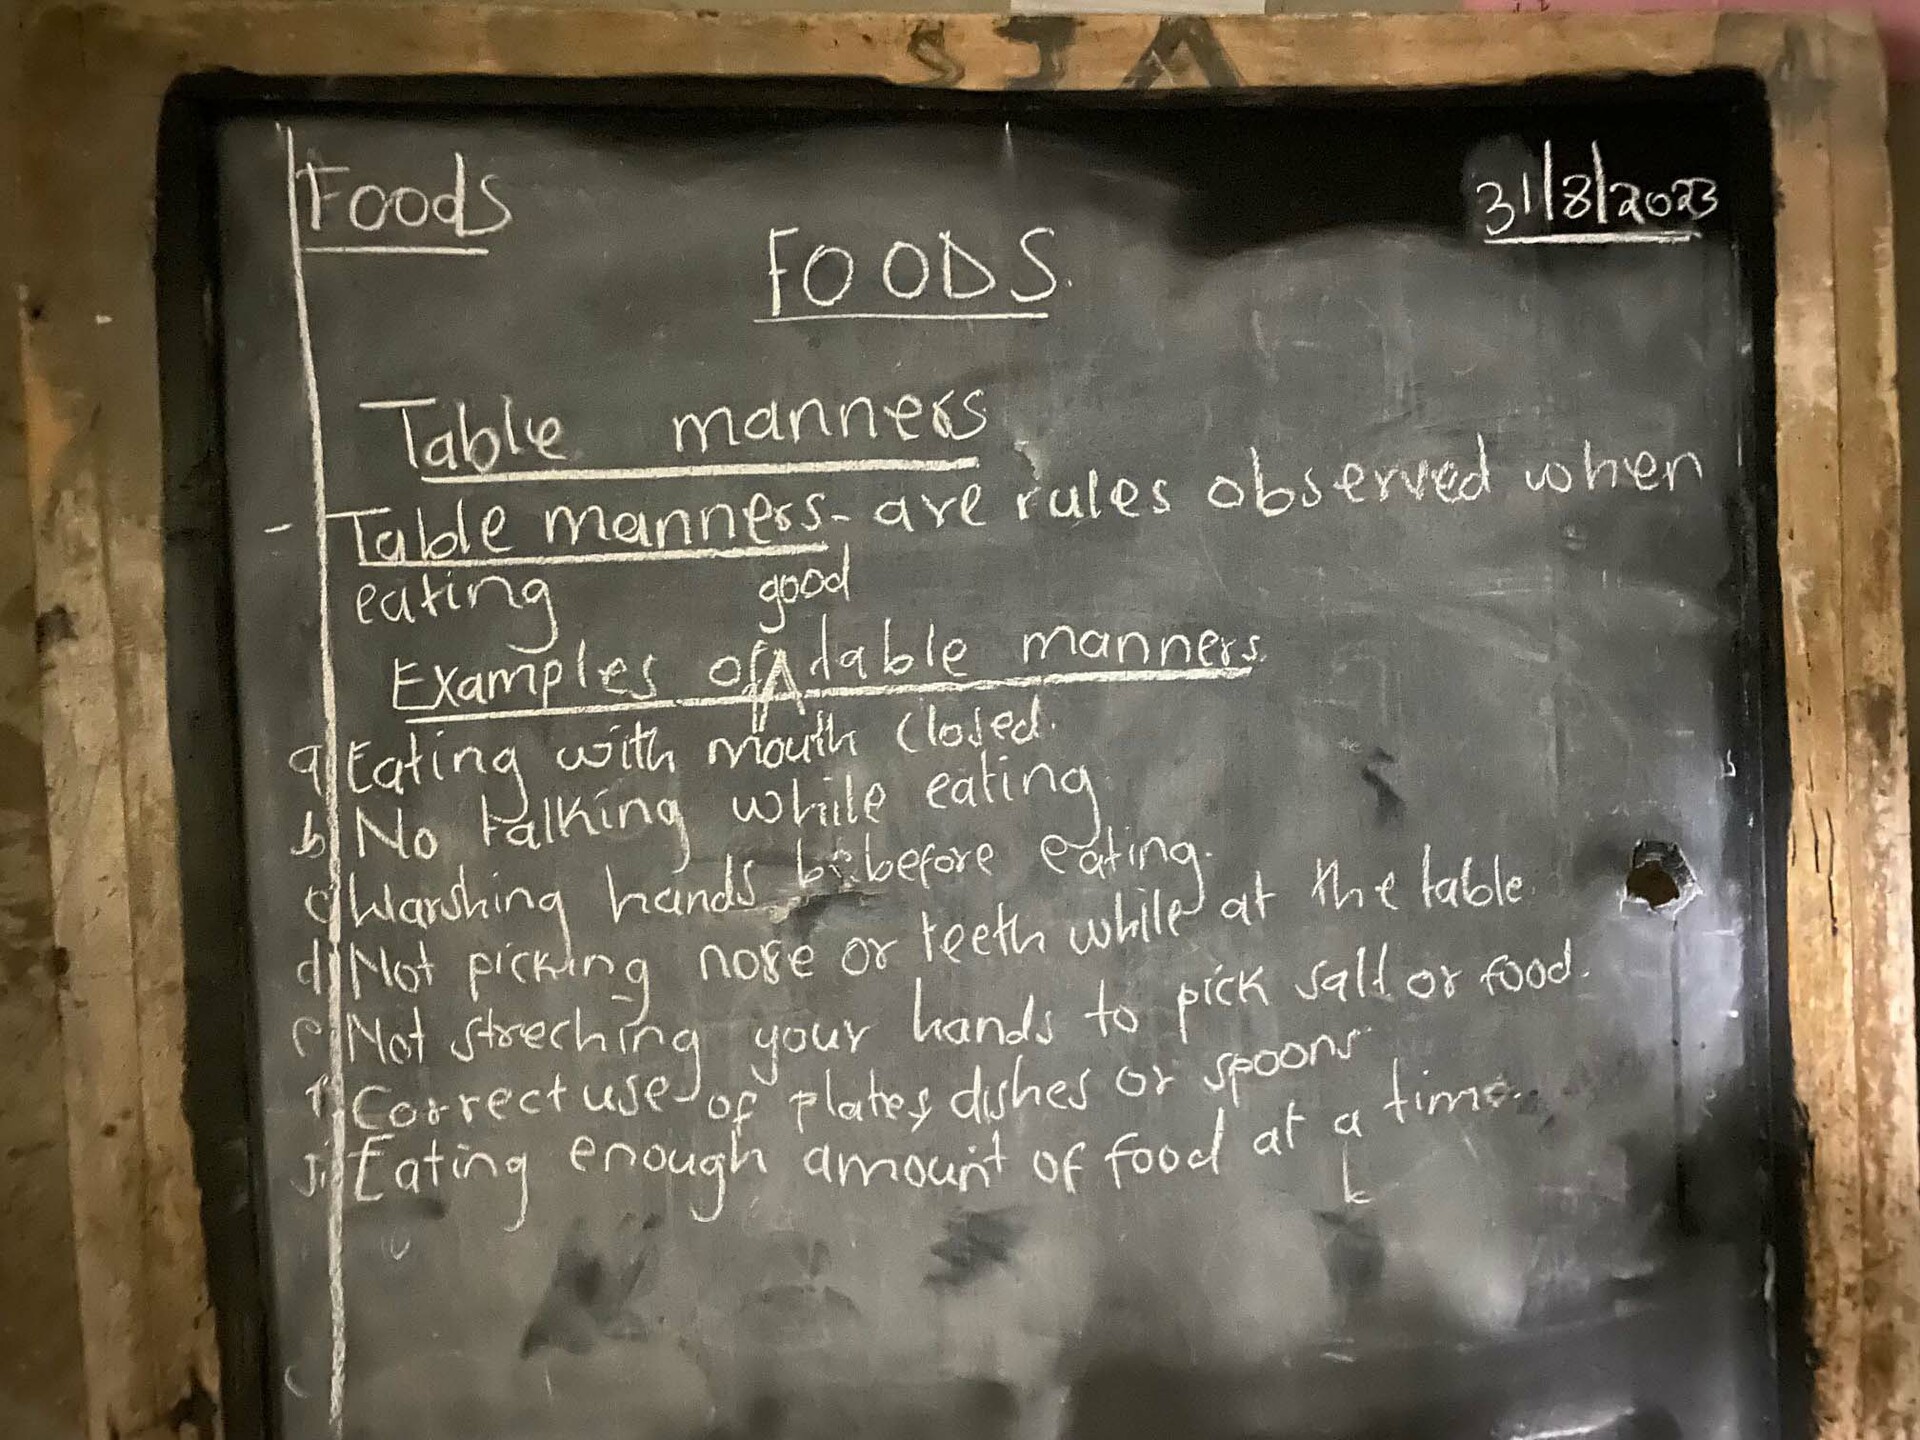 Foods
31/8/2023
FOODS.
Table manners
- Table manners - are rules observed when
eating
good
Examples of table manners.
a Eating with mouth closed.
b No talking while eating
c Warshing hands before eating.
d Not picking nose or teeth while at the table.
e Not streching your hands to pick salt or food.
f. Correct use of plates dishes or spoons
Eating enough amount of food at a time.